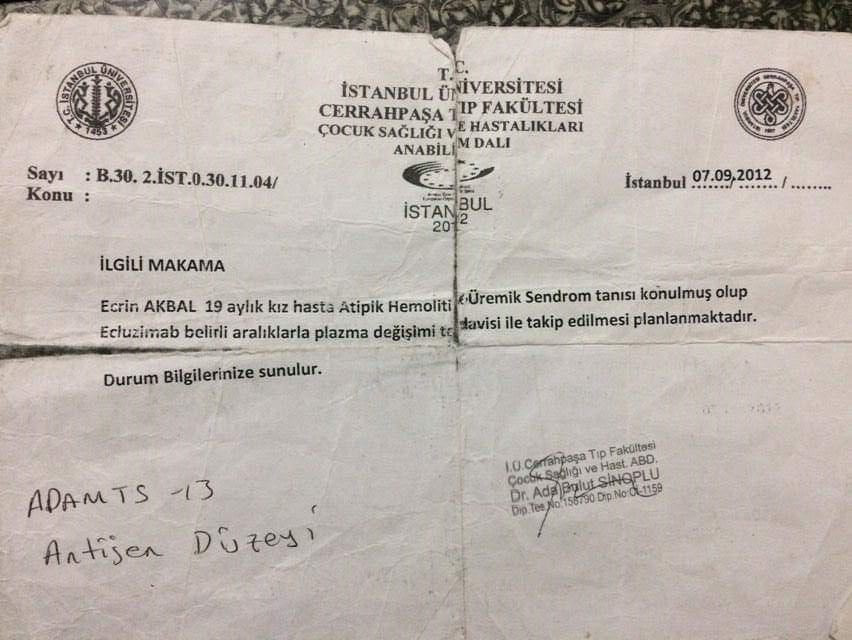 T.C.
İSTANBUL ÜNİVERSİTESİ
CERRAHPAŞA TIP FAKÜLTESİ
ÇOCUK SAĞLIĞI VE HASTALIKLARI
ANABİLİM DALI
T.C. İSTANBUL ÜNİVERSİTESİ
1453
Sayı : B.30. 2.İST.0.30.11.04/
Konu :
İstanbul 07.09.2012 ....../ ....... / .......
İSTANBUL
2012
İLGİLİ MAKAMA
Ecrin AKBAL 19 aylık kız hasta Atipik Hemoliti Üremik Sendrom tanısı konulmuş olup
Ecluzimab belirli aralıklarla plazma değişimi tedavisi ile takip edilmesi planlanmaktadır.
Durum Bilgilerinize sunulur.
İ.Ü.Cerrahpaşa Tıp Fakültesi
Çocuk Sağlığı ve Hast. ABD.
Dr. Ada Bulut SİNOPLU
Dip.Tes.No:156790 Dip.No:CL-1159
ADAMTS -13
Antijen Düzeyi